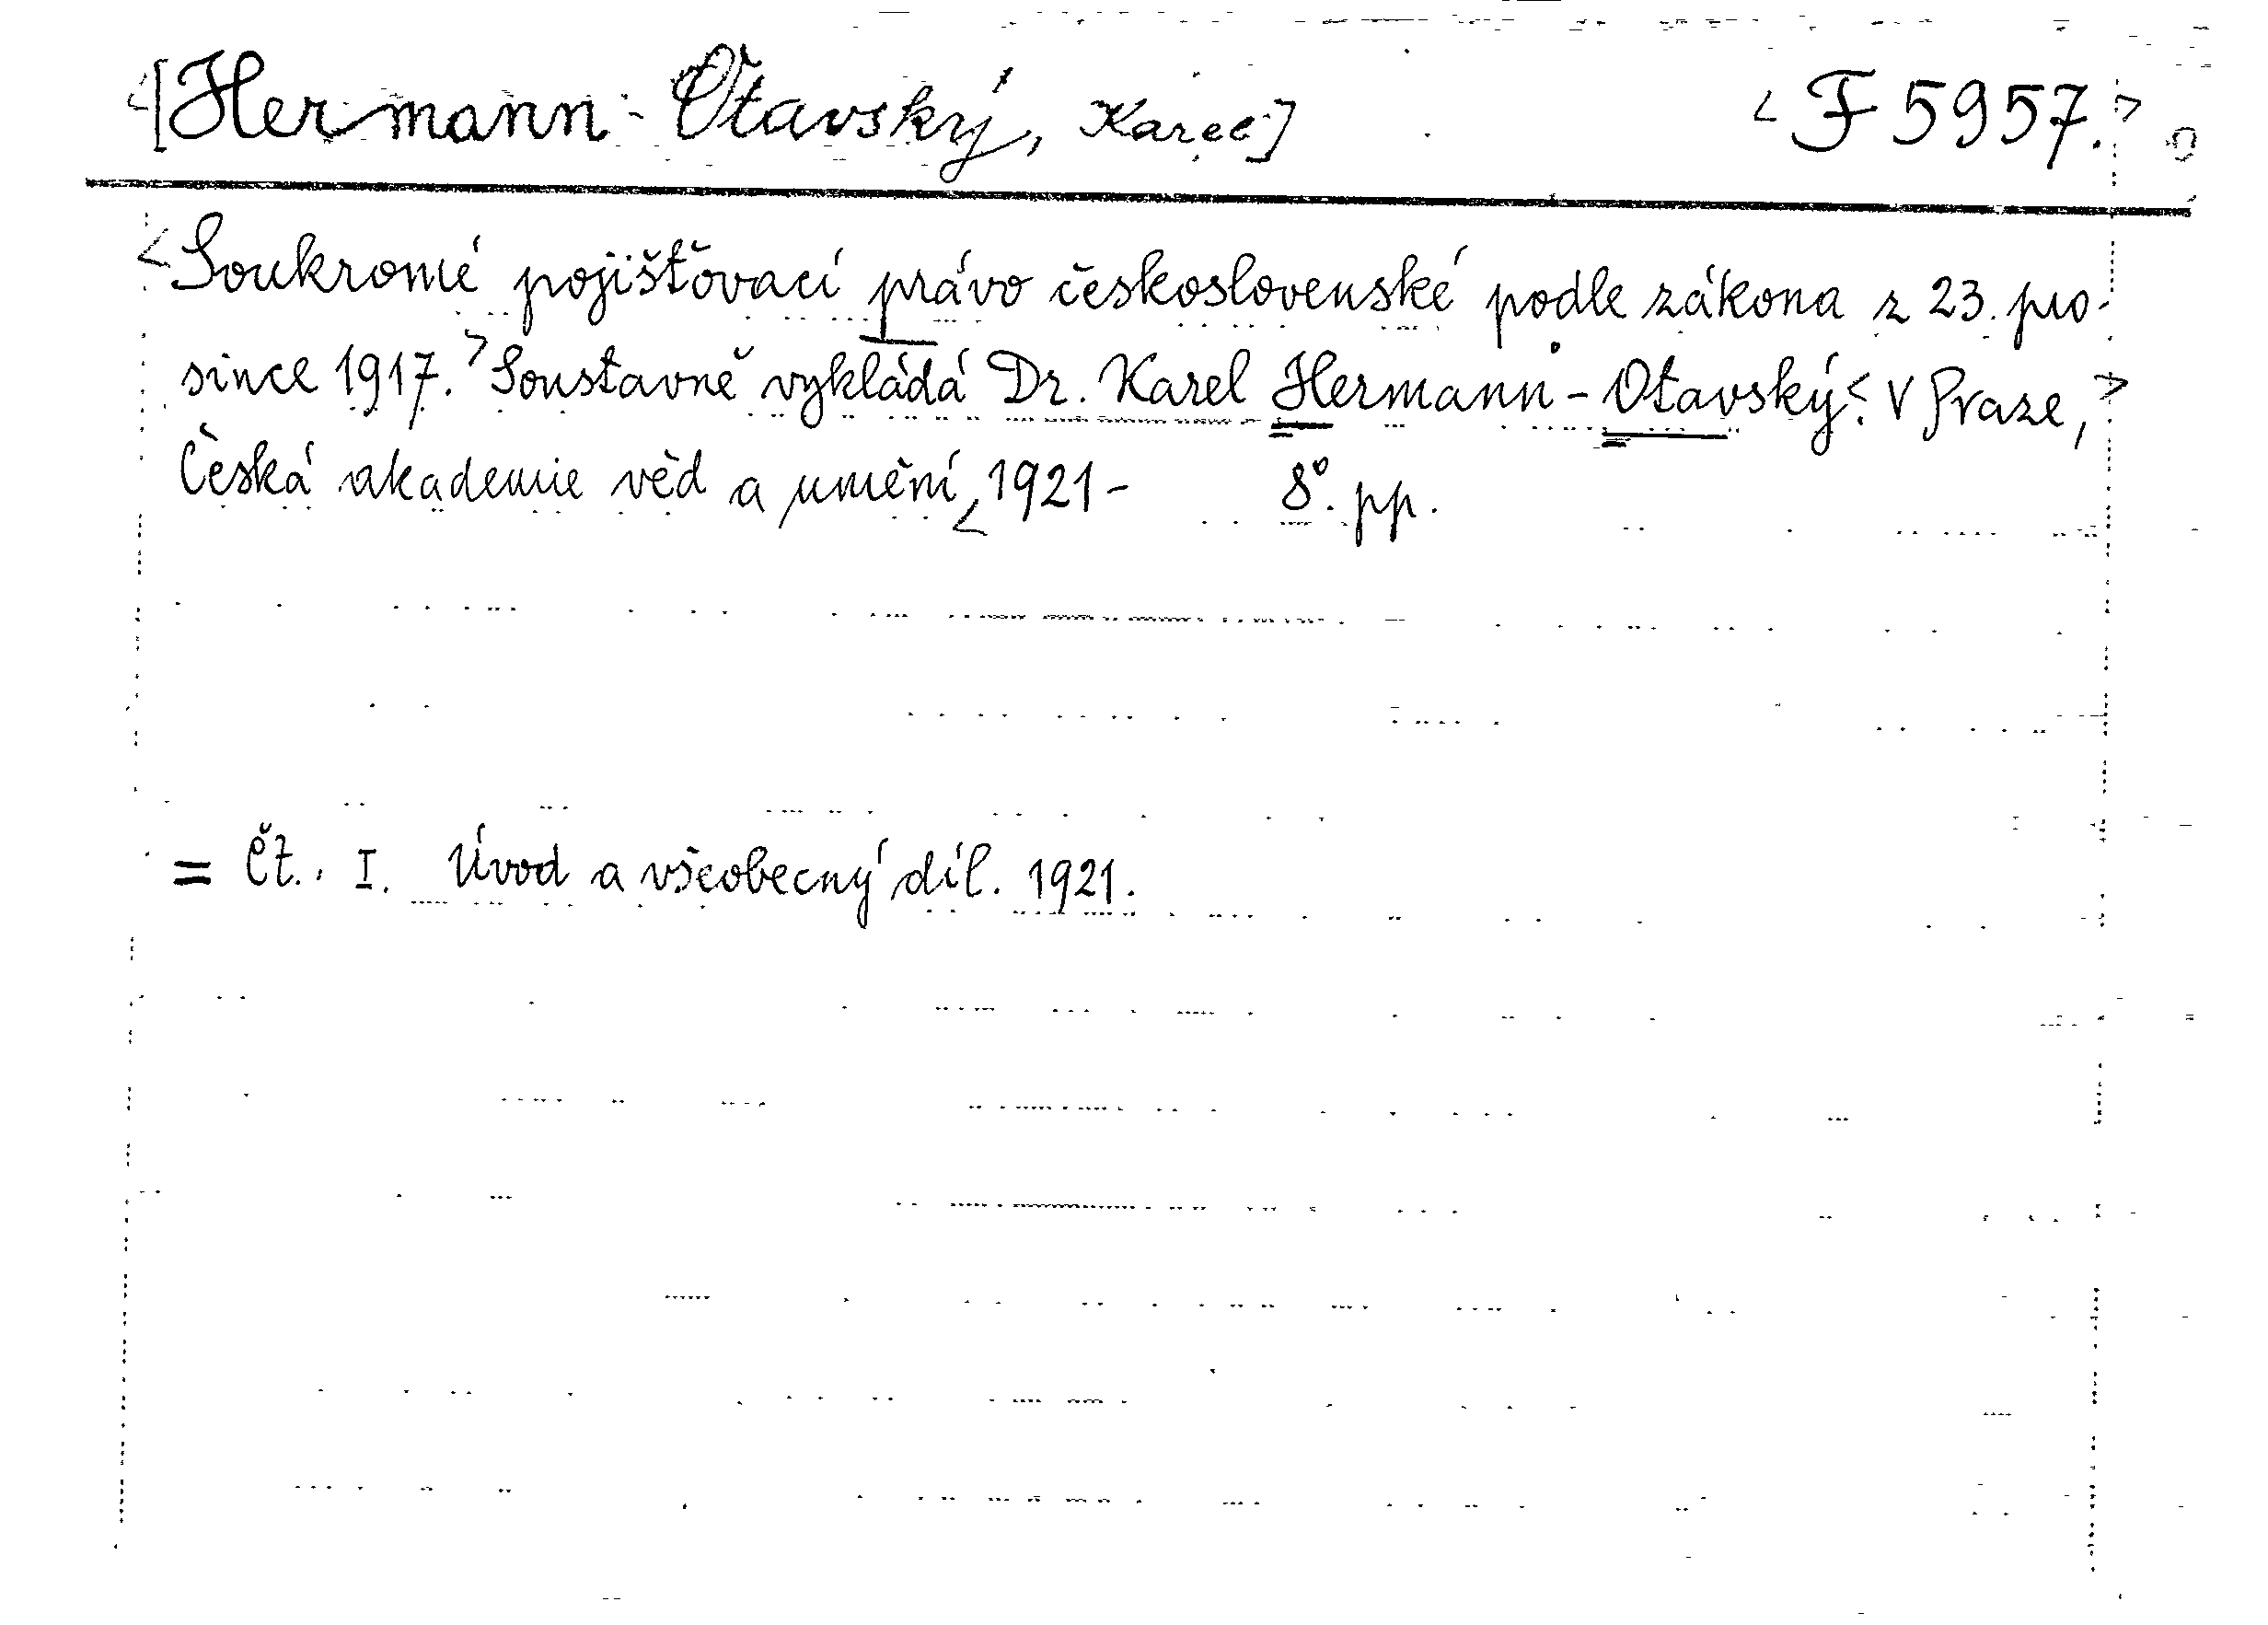 <[Hermann-Otavský, Karel] <F 5957.>
<Soukromé pojišťovací právo československé podle zákona z 23. pro-
since 1917.> Soustavně vykládá Dr. Karel Hermann-Otavský<. V Praze,>
Česká akademie věd a umění,< 1921- 8°. pp.
= Čt. I. Úvod a všeobecný díl. 1921.